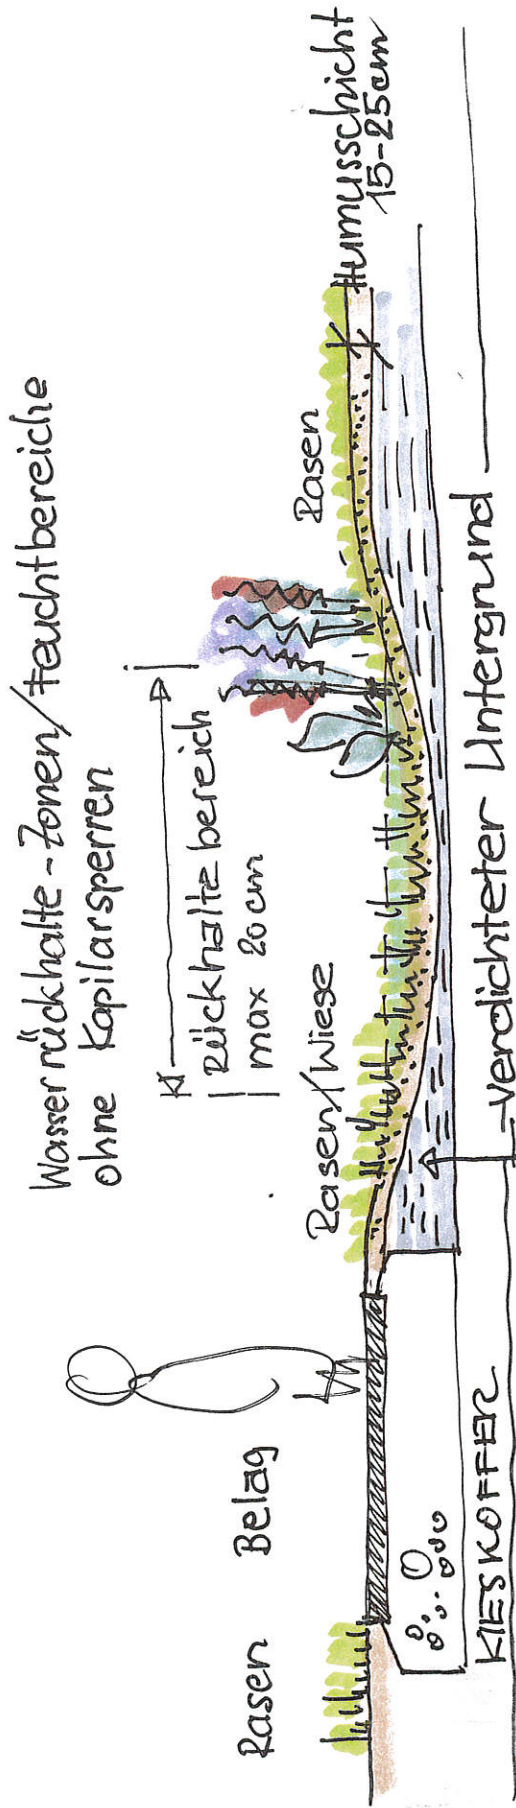 Wasserrückhalte-Zonen/Feuchtbereiche
ohne Kapilarsperren
Rückhaltebereich
max 20cm
Rasen
Belag
Rasen/Wiese
Rasen
Humusschicht
15-25cm
KIESKOFFER
verdichteter Untergrund